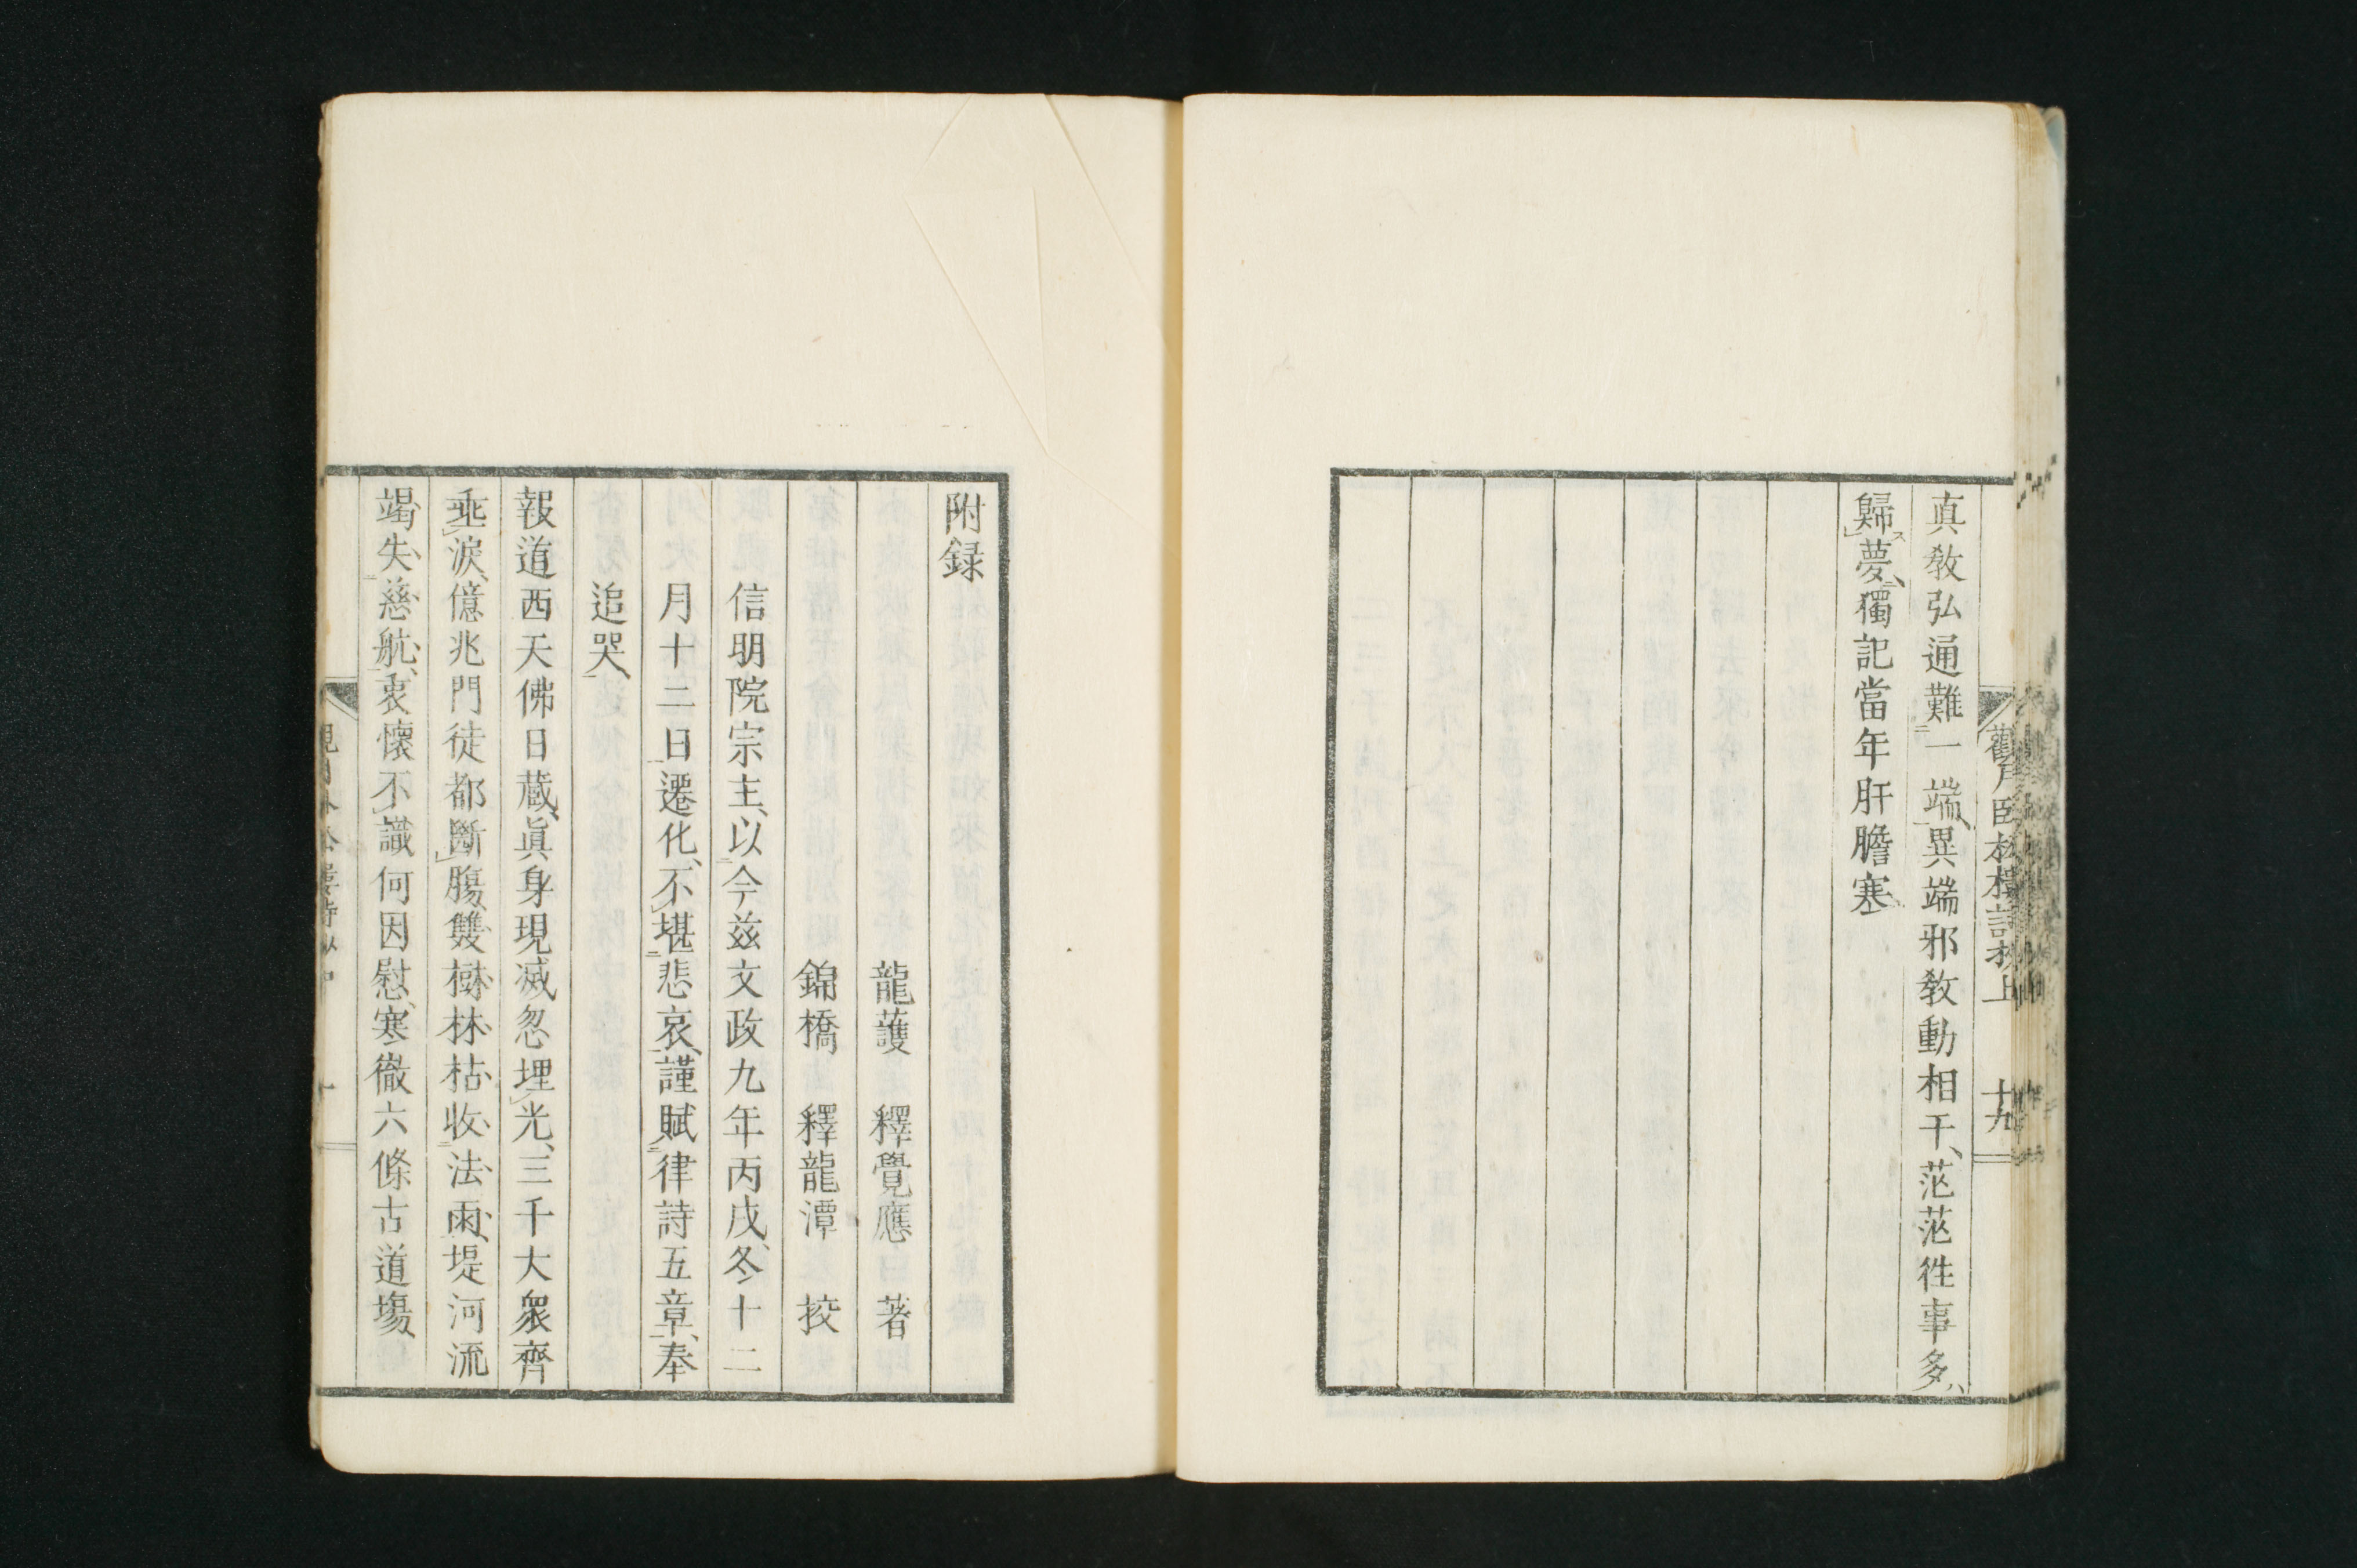 真教弘通難一端異端邪教動相干茫茫徃事多
歸夢獨記當年肝膽寒
十九
附録
龍護　釋覺應　著
錦橋　釋龍潭　挍
信明院宗主以今兹文政九年丙戌冬十二
月十二日遷化不堪悲哀謹賦律詩五章奉
追哭
報道西天佛日藏眞身現滅忽埋光三千大衆齊
垂涙億兆門徒都斷膓雙樹林枯收法雨堤河流
竭失慈航衷懷不識何因慰寒徹六條古道塲